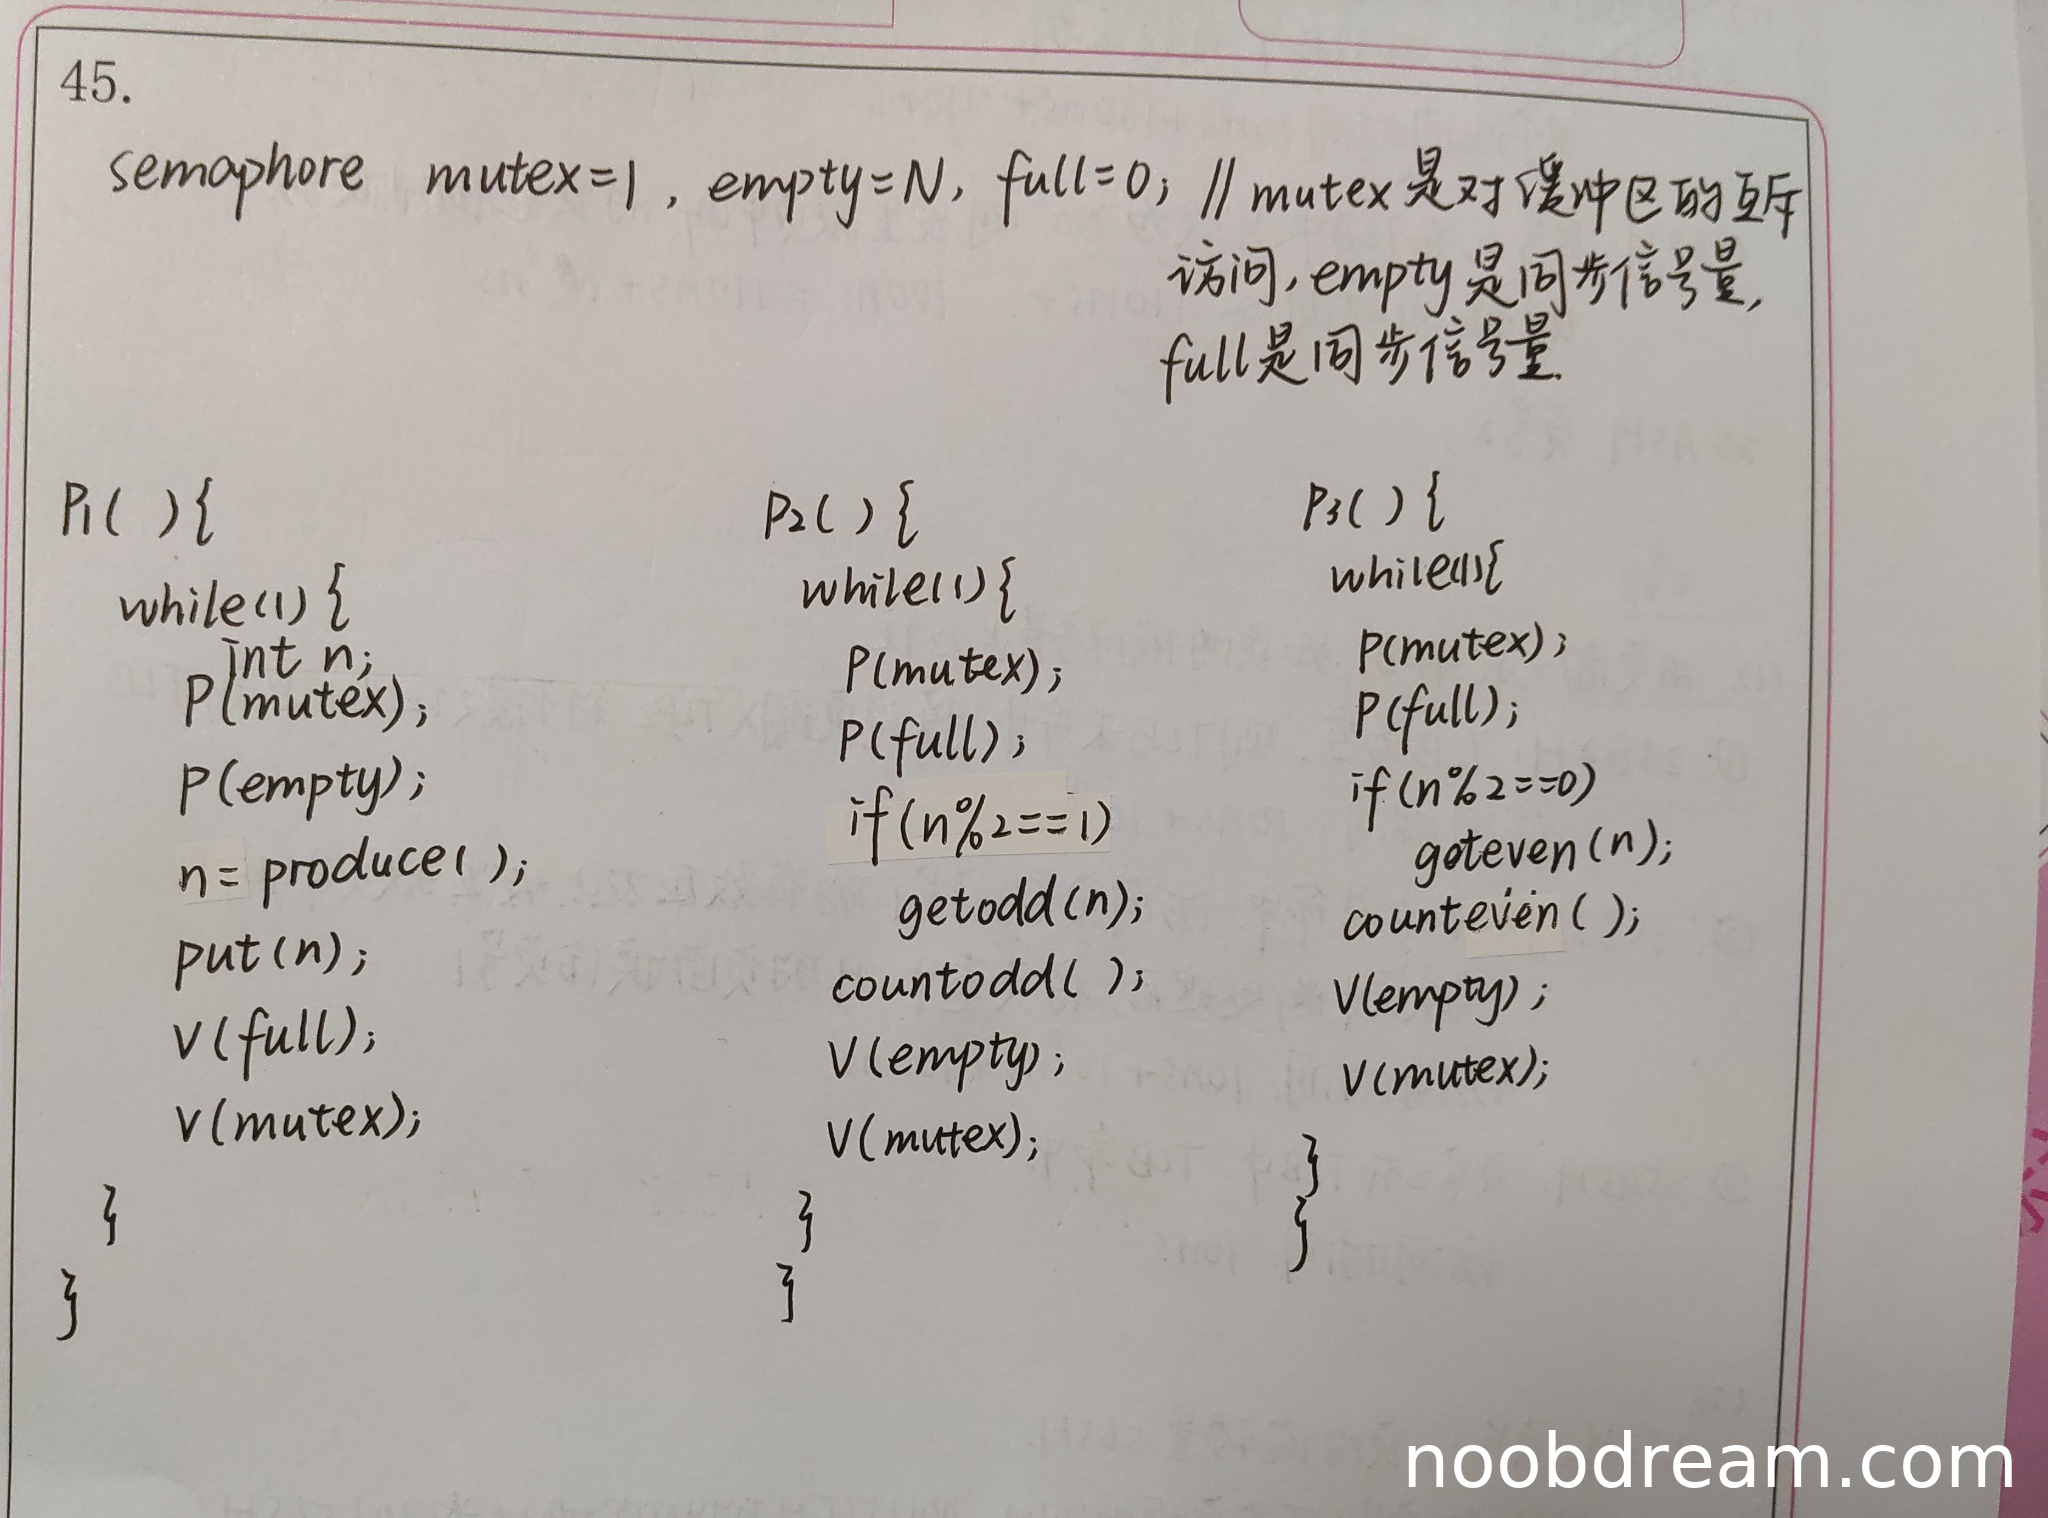 45.
semaphore mutex=1, empty=N, full=0; // mutex是对缓冲区的互斥
访问, empty是同步信号量,
full是同步信号量.
P1( ){
while(1){
int n;
P(mutex);
P(empty);
n= produce( );
put(n);
V(full);
V(mutex);
}
}
P2( ){
while(1){
P(mutex);
P(full);
if(n%2==1)
getodd(n);
countodd( );
V(empty);
V(mutex);
}
}
P3( ){
while(1){
P(mutex);
P(full);
if(n%2==0)
geteven(n);
counteven( );
V(empty);
V(mutex);
}
}
noobdream.com